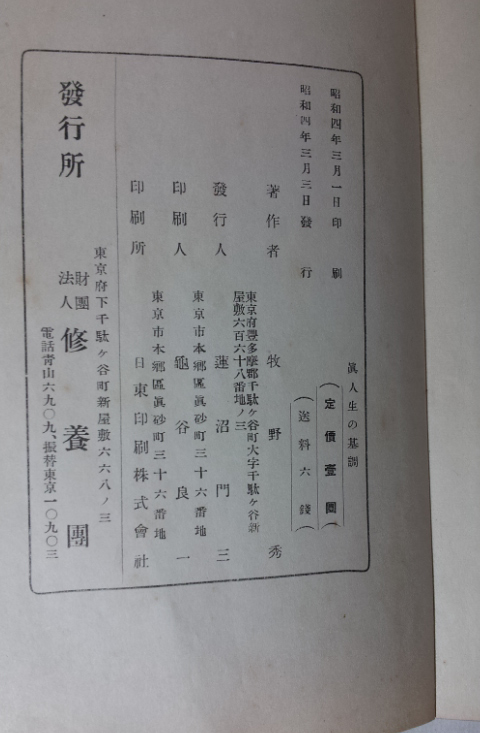 眞人生の基調
（定價壹圓）
（送料六錢）
昭和四年三月一日印刷
昭和四年三月三日發行
著作者 牧野秀
東京府豐多摩郡千駄ヶ谷町大字千駄ヶ谷新
屋敷六百六十八番地ノ三
發行人 蓮沼門三
東京市本鄕區眞砂町三十六番地
印刷人 龜谷良一
東京市本鄕區眞砂町三十六番地
印刷所 日東印刷株式會社
東京府下千駄ヶ谷町新屋敷六六八ノ三
發行所 財團法人 修養團
電話靑山六九〇九、振替東京一〇九〇三